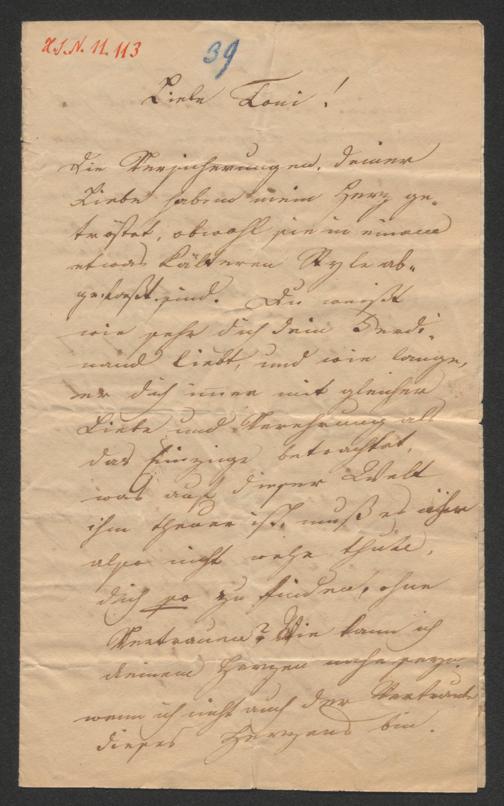 H.I.N. 11.113
39
Liebe Toni!
Die Versicherungen, deiner
Liebe haben mein Herz ge-
tröstet, obwohl sie in einem
etwas kälteren Style ab-
gefaßt sind. Du weißt
wie sehr dich dein Ferdi-
nand liebt, und wie lange,
er dich immer mit gleicher
Liebe und Verehrung als
das Einzige betrachtet,
was auf dieser Welt
ihm theuer ist, muß es ihm
also nicht wehe thun,
dich so zu finden, ohne
Vertrauen? Wie kann ich
deinem Herzen nahe seyn,
wenn ich nicht auch der Vertraute
dieses Herzens bin.